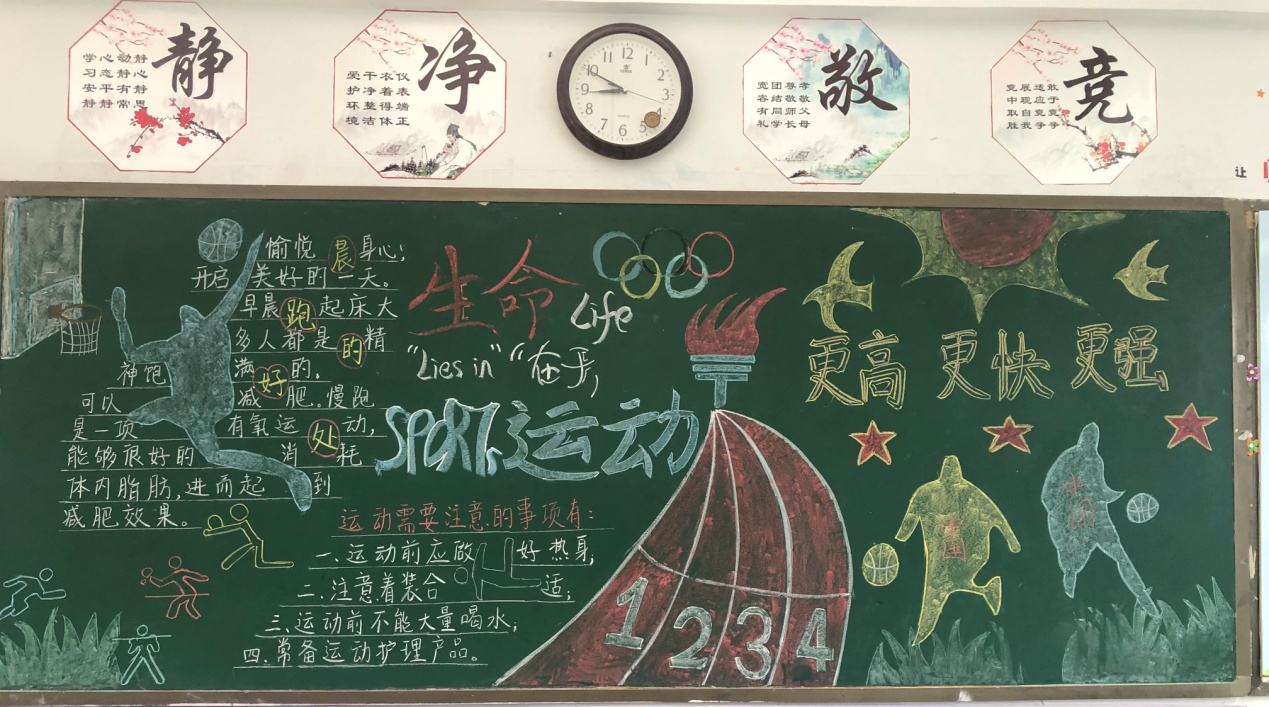 静
学心动静
习态静心
安平有静
静静常思
净
爱干衣仪
护净着表
环整得端
境洁体正
12
1
2
3
4
5
6
7
8
9
10
11
敬
宽团尊孝
容结敬敬
有同师父
礼学长母
竞
竞展适敢
中现应于
取自竞竞
胜我争争
让
愉悦晨身心；
开启美好的一天。
早晨跑起床大
多人都是的精
神饱满好的，
可以减肥。慢跑
是一项有氧运动，
能够很好的消处耗
体内脂肪，进而起到
减肥效果。
生命 Life
"Lies in" "在乎，
SPORTS运动
运动需要注意的事项有：
一、运动前应做好热身；
二、注意着装合适；
三、运动前不能大量喝水；
四、常备运动护理产品。
1 2 3 4
更高 更快 更强
中国